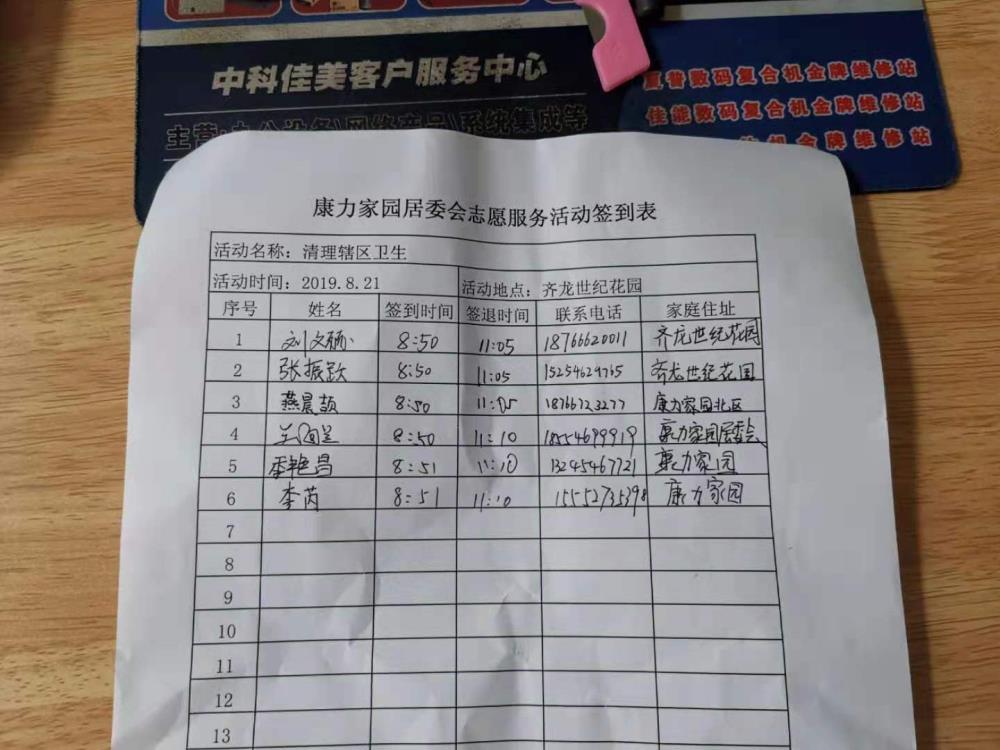 中科佳美客户服务中心
主营:办公设备\网络产品\系统集成等
夏普数码复合机金牌维修站
佳能数码复合机金牌维修站
机金牌维修站
康力家园居委会志愿服务活动签到表
活动名称：清理辖区卫生
活动时间：2019.8.21 活动地点：齐龙世纪花园
序号 姓名 签到时间 签退时间 联系电话 家庭住址
1 刘文硕 8:50 11:05 18766620011 齐龙世纪花园
2 张振跃 8:50 11:05 15254624765 齐龙世纪花园
3 燕晨颉 8:50 11:05 18766723277 康力家园北区
4 8:50 11:10 18554699919 康力家园居委会
5 李艳昌 8:51 11:10 13245467721 康力家园
6 李芮 8:51 11:10 15552735398 康力家园
7
8
9
10
11
12
13